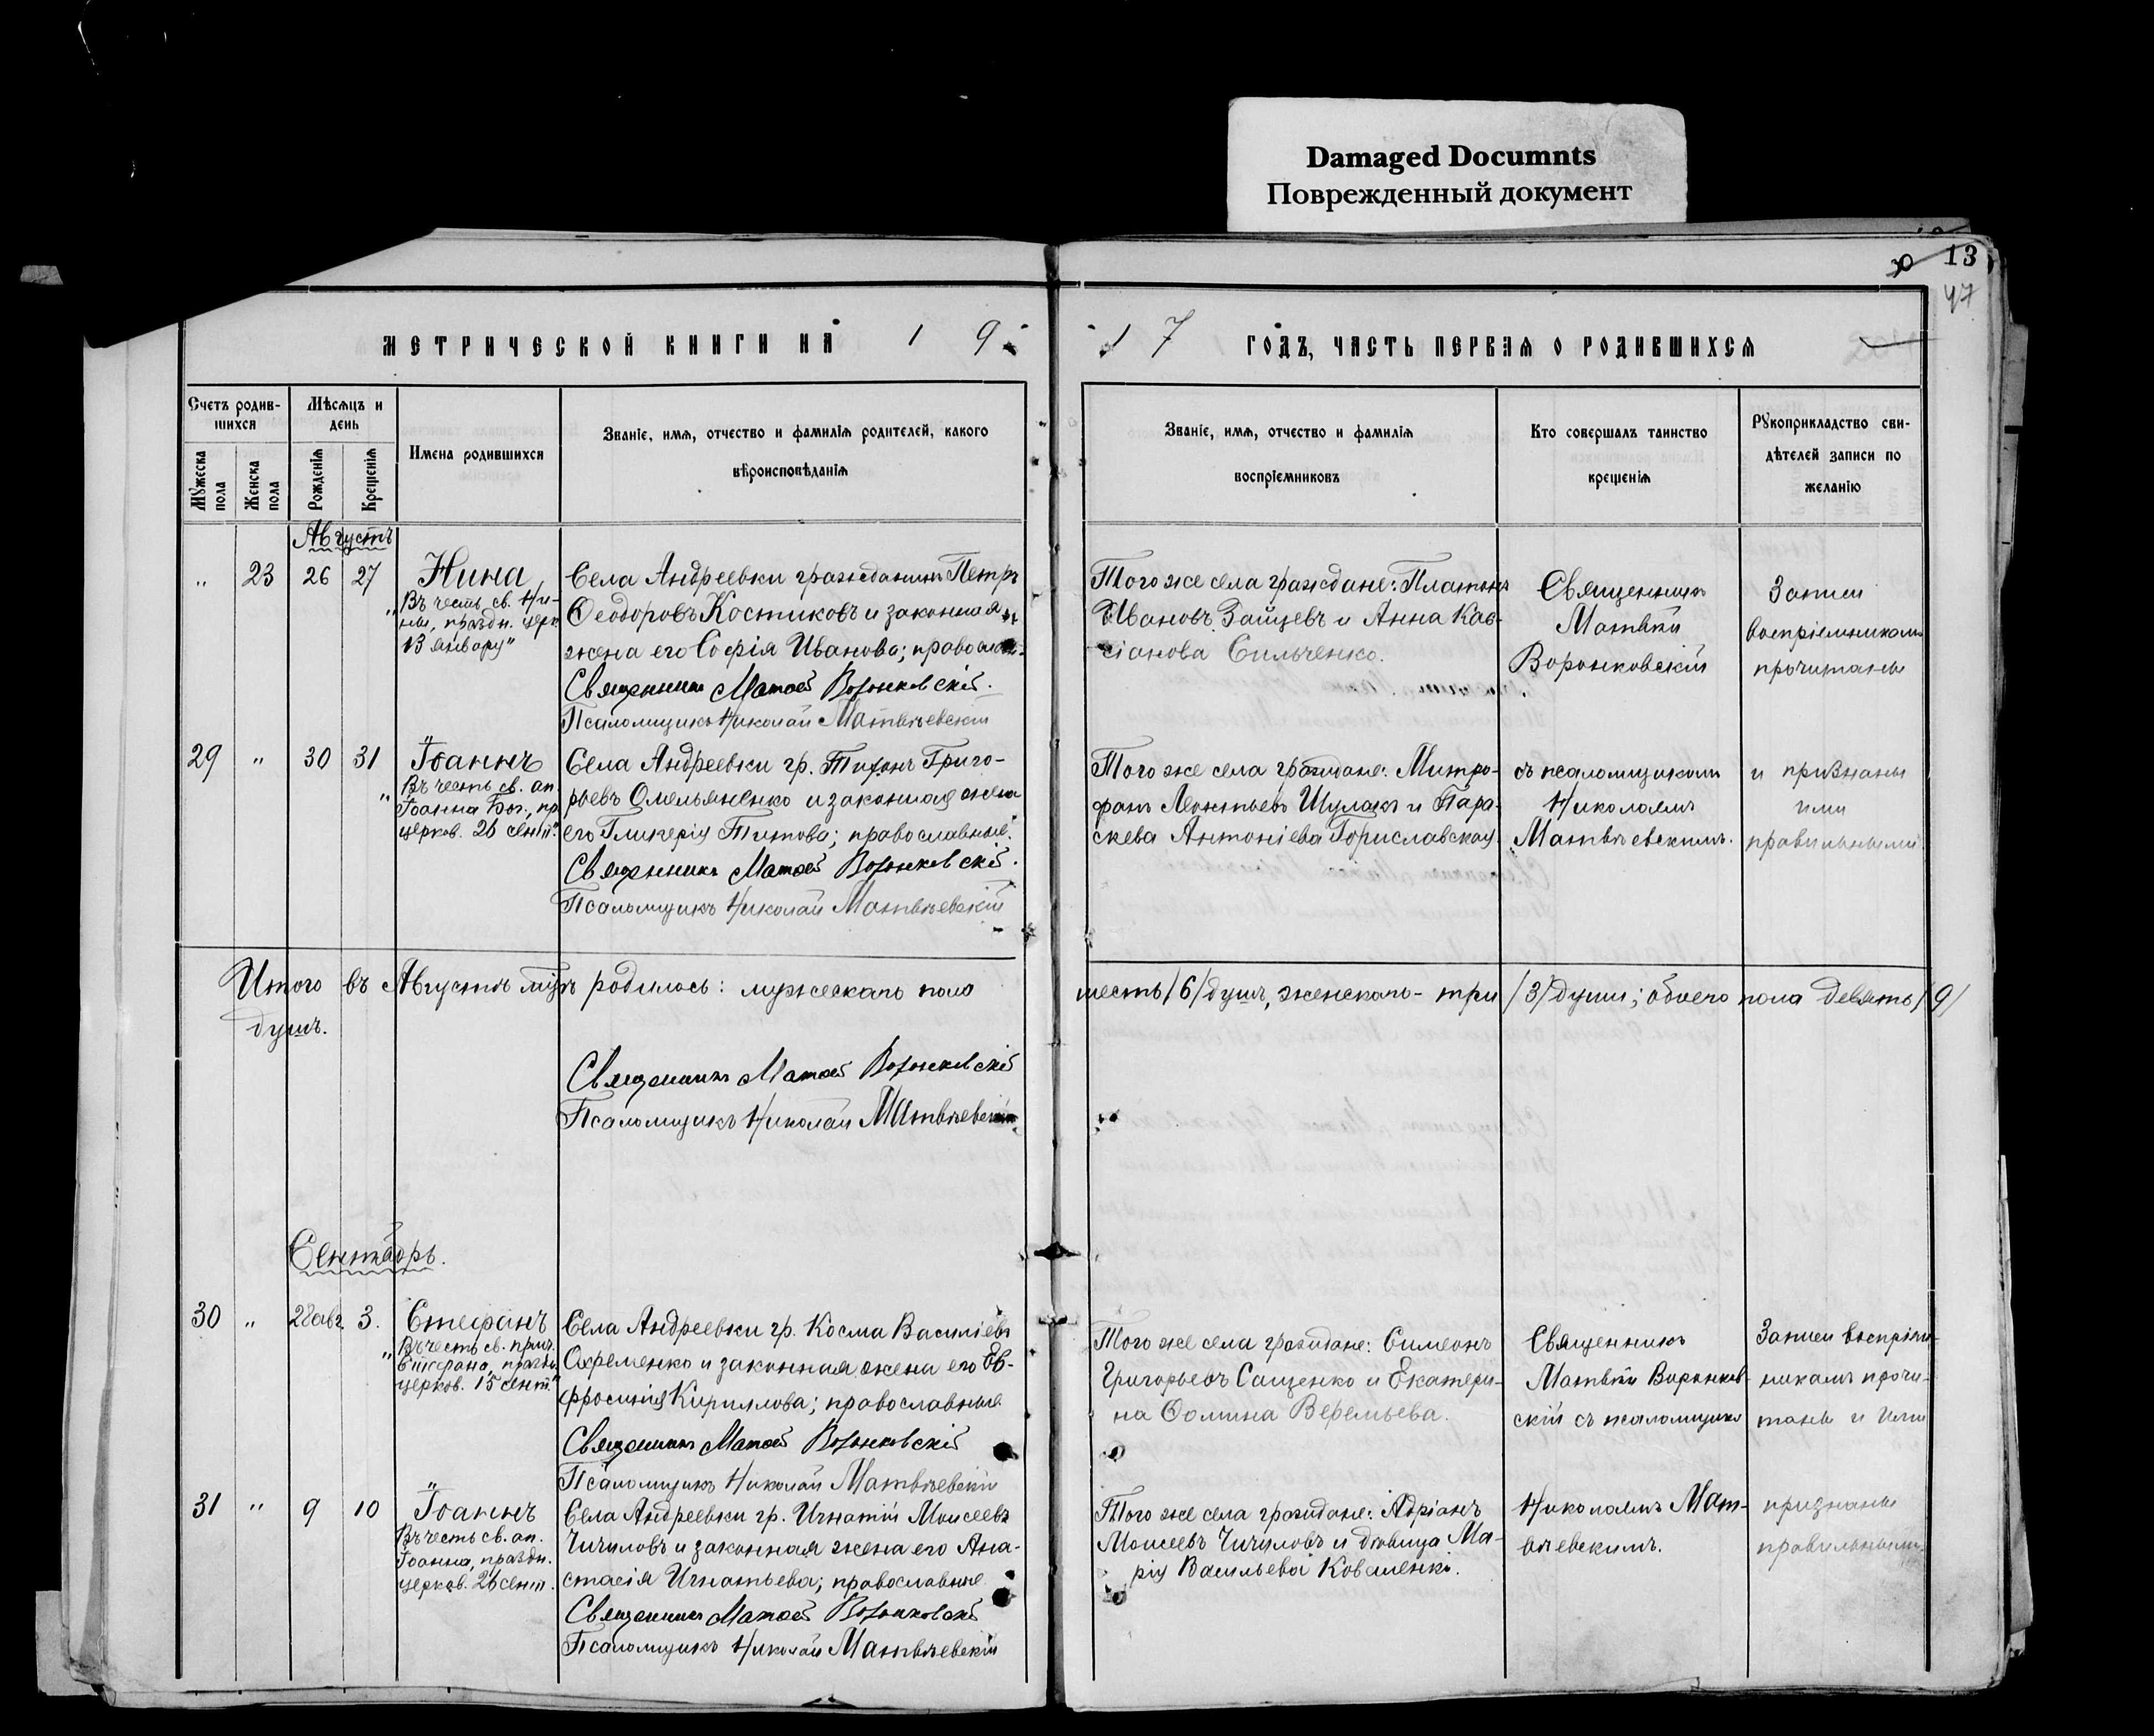 Damaged Documnts
Поврежденный документ
30 13
47
МЕТРИЧЕСКОЙ КНИГИ НА 1 9
1 7 ГОДЪ, ЧАСТЬ ПЕРВАЯ О РОДИВШИХСЯ
Счетъ родив-
шихся
Мѣсяцъ и
день
Мужеска
пола
Женска
пола
Рожденія
Крещенія
Имена родившихся
Званіе, имя, отчество и фамилія родителей, какого
вѣроисповѣданія
Званіе, имя, отчество и фамилія
воспріемниковъ
Кто совершалъ таинство
крещенія
Рукоприкладство сви-
дѣтелей записи по
желанію
Августъ
" 23 26 27
Нина
"Въ честь св. Ни-
ны, праздн. церк.
13 январу"
Села Андреевки гражданинъ Петръ
Ѳеодоровъ Костиковъ и законная
жена его Софія Иванова; православ.
Священникъ Матѳей Воронковскій.
Псаломщикъ Николай Матвѣевскій
Того же села граждане: Платонъ
Ивановъ Зайцевъ и Анна Кас-
сіанова Сильченко.
Священникъ
Матвѣй
Воронковскій
Записи
воспріемникамъ
прочитаны
29 " 30 31
Іоаннъ
"Въ честь св. ап.
Іоанна Бог., пр.
церков. 26 сент."
Села Андреевки гр. Тихонъ Григо-
рьевъ Омельяненко и законная жена
его Гликерія Титова; православные.
Священникъ Матѳей Воронковскій.
Псаломщикъ Николай Матвѣевскій
Того же села граждане: Митро-
фанъ Леонтьевъ Шулакъ и Пара-
скева Антоніева Гориславская
съ псаломщикомъ
Николаемъ
Матвѣевскимъ.
и признаны
ими
правильными.
Итого въ Августѣ мѣс. родилось: мужескаго пола
шесть /6/ душъ, женскаго - три /3/ души; обоего пола девять /9/
душъ.
Священникъ Матѳей Воронковскій
Псаломщикъ Николай Матвѣевскій
Сентябрь.
30 " 28 авг. 3.
Стефанъ
"Въ честь св. прич.
Стефана, праздн.
церков. 15 сент."
Села Андреевки гр. Косма Василіевъ
Охременко и законная жена его Ев-
фросинія Кириллова; православные.
Священникъ Матѳей Воронковскій
Псаломщикъ Николай Матвѣевскій
Того же села граждане: Симеонъ
Григорьевъ Сащенко и Екатери-
на Ѳомина Веремьева.
Священникъ
Матвѣй Воронков-
скій съ псаломщико
Записи воспріем-
никамъ прочи-
таны и ими
31 " 9 10
Іоаннъ
Въ честь св. ап.
Іоанна, праздн.
церков. 26 сент.
Села Андреевки гр. Игнатій Моисеевъ
Чичуловъ и законная жена его Ана-
стасія Игнатьева; православные
Священникъ Матѳей Воронковскій
Псаломщикъ Николай Матвѣевскій
Того же села граждане: Адріанъ
Моисеевъ Чичуловъ и дѣвица Ма-
рія Васильева Коваленко.
Николаемъ Мат-
вѣевскимъ.
признаны
правильными.